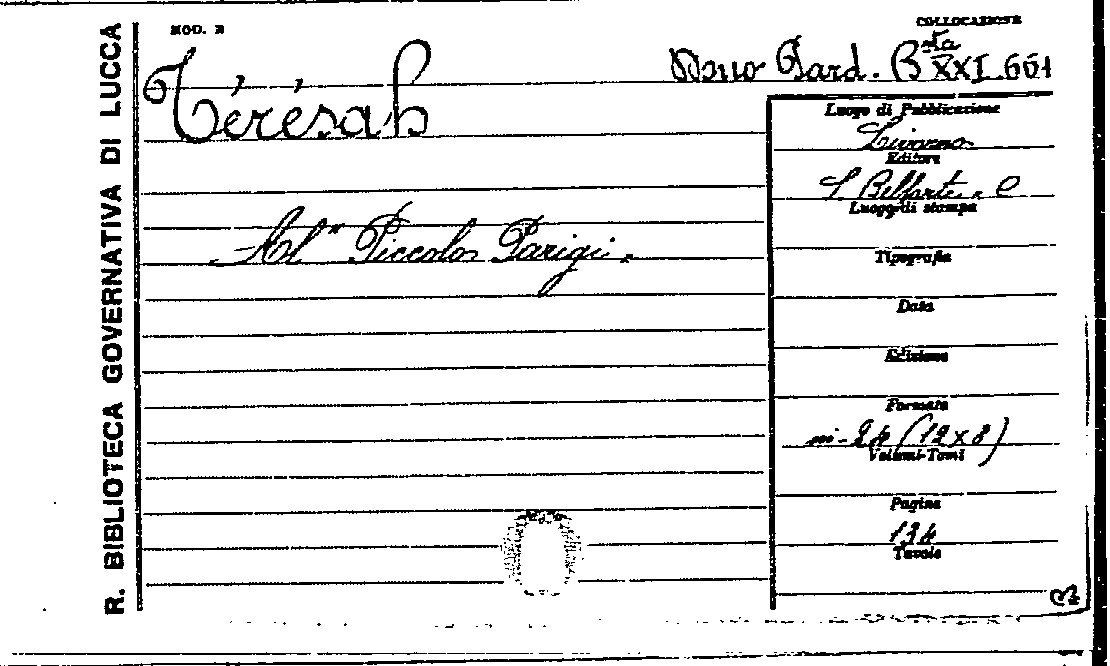 R. BIBLIOTECA GOVERNATIVA DI LUCCA
MOD. B
COLLOCAZIONE
Dono Pard. B.sta XXI 661
Téresah
Al "Piccolo Parigi".
Luogo di Pubblicazione
Livorno
Editore
S. Belforte e C
Luogo di stampa
Tipografia
Data
Edizione
Formato
in-24 (12x8)
Volumi-Tomi
Pagine
134
Tavole